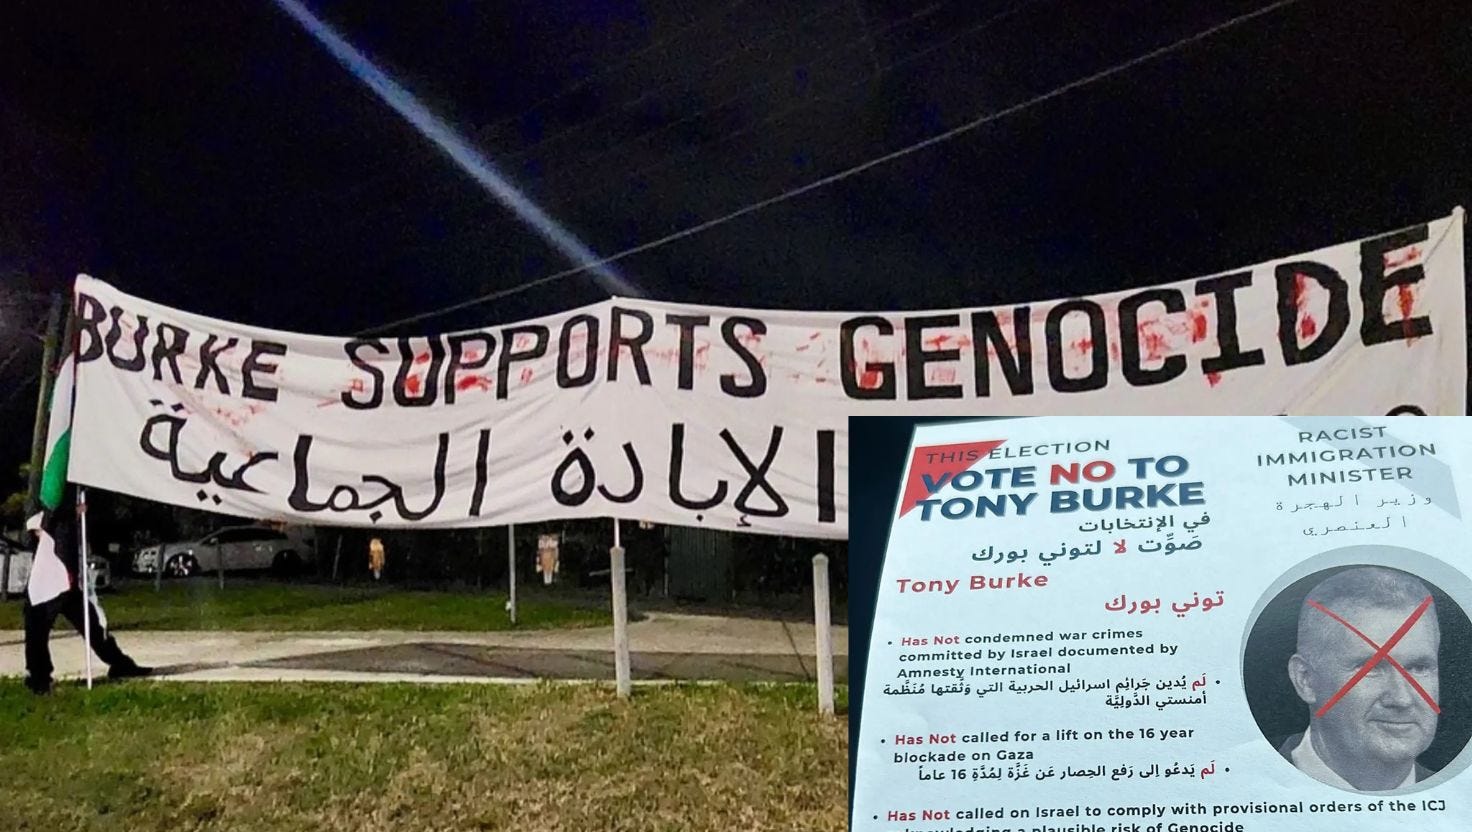 BURKE SUPPORTS GENOCIDE
الإبادة الجماعية
THIS ELECTION
VOTE NO TO
TONY BURKE
في الإنتخابات
صَوِّت لا لتوني بورك
RACIST
IMMIGRATION
MINISTER
وزير الهجرة
العنصري
Tony Burke
توني بورك
• Has Not condemned war crimes
committed by Israel documented by
Amnesty International
• لَم يُدين جَرائِم اسرائيل الحربية التي وَثَّقتها مُنَظَّمة
أمنستي الدَّوليَّة
• Has Not called for a lift on the 16 year
blockade on Gaza
• لَم يَدعُو اِلى رَفع الحِصار عَن غَزَّة لِمُدَّةِ 16 عاماً
• Has Not called on Israel to comply with provisional orders of the ICJ
a plausible risk of Genocide